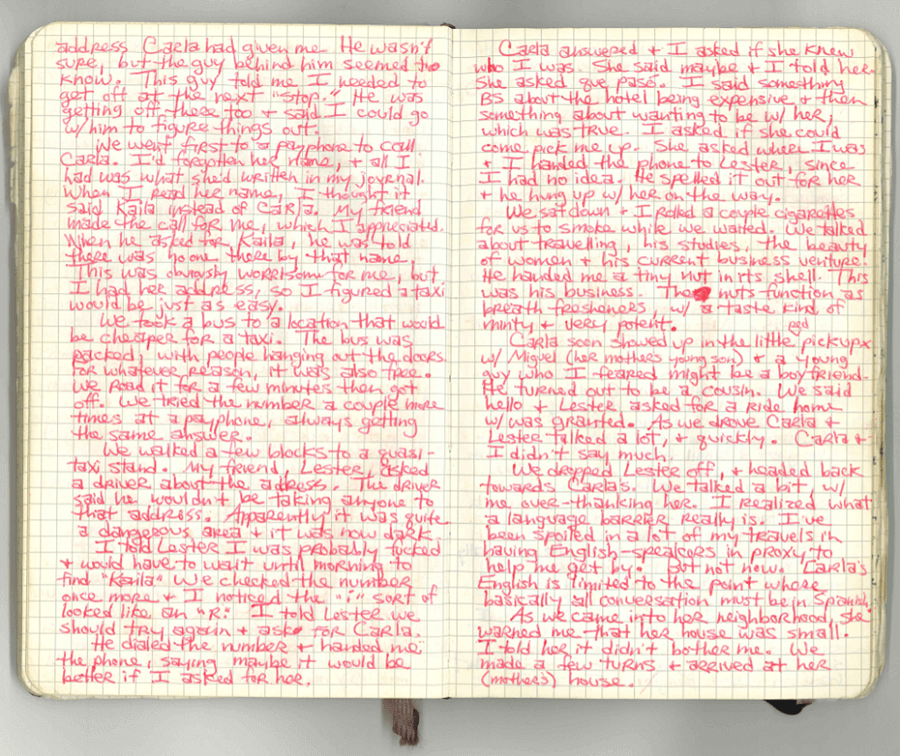 address Carla had given me He wasn't
sure, but the guy behind him seemed to
know. This guy told me I needed to
get off at the next "stop." He was
getting off there too + said I could go
w/ him to figure things out.
We went first to a payphone to call
Carla. I'd forgotten her name, + all I
had was what she'd written in my journal.
When I read her name, I thought it
said Kaila instead of CaRla. My friend
made the call for me, which I appreciated.
When he asked for Kaila, he was told
there was no one there by that name.
This was obviously worrisome for me, but
I had her address, so I figured a taxi
would be just as easy.
We took a bus to a location that would
be cheaper for a taxi. The bus was
packed, with people hanging out the doors.
For whatever reason, it was also free.
We road it for a few minutes then got
off. We tried the number a couple more
times at a payphone, always getting
the same answer.
We walked a few blocks to a quasi-
taxi stand. My friend, Lester, asked
a driver about the address. The driver
said he wouldn't be taking anyone to
that address. Apparently it was quite
a dangerous area + it was now dark.
I told Lester I was probably fucked
+ would have to wait until morning to
find "Kaila" We checked the number
once more + I noticed the "i" sort of
looked like an "R." I told Lester we
should try again + ask for Carla.
He dialed the number + handed me
the phone, saying maybe it would be
better if I asked for her.
Carla answered + I asked if she knew
who I was. She said maybe + I told her.
She asked que pasó. I said something
BS about the hotel being expensive + then
something about wanting to be w/ her,
which was true. I asked if she could
come pick me up. She asked where I was
+ I handed the phone to Lester, since
I had no idea. He spelled it out for her
+ he hung up w/ her on the way.
We sat down + I rolled a couple cigarettes
for us to smoke while we waited. We talked
about travelling, his studies, the beauty
of women + his current business venture.
He handed me a tiny nut in its shell. This
was his business. The nuts function as
breath fresheners, w/ a taste kind of
minty + very potent.
Carla soon showed up in the little red pickup
w/ Miguel (her mothers young son) + a young
guy who I feared might be a boyfriend.
He turned out to be a cousin. We said
hello + Lester asked for a ride home
w/ was granted. As we drove Carla +
Lester talked a lot, + quickly. Carla +
I didn't say much.
We dropped Lester off, + headed back
towards Carla's. We talked a bit, w/
me over-thanking her. I realized what
a language barrier really is. I've
been spoiled in a lot of my travels in
having English-speakers in proxy to
help me get by. But not now. Carla's
English is limited to the point where
basically all conversation must be in Spanish.
As we came into her neighborhood, she
warned me that her house was small.
I told her it didn't bother me. We
made a few turns + arrived at her
(mother's) house.